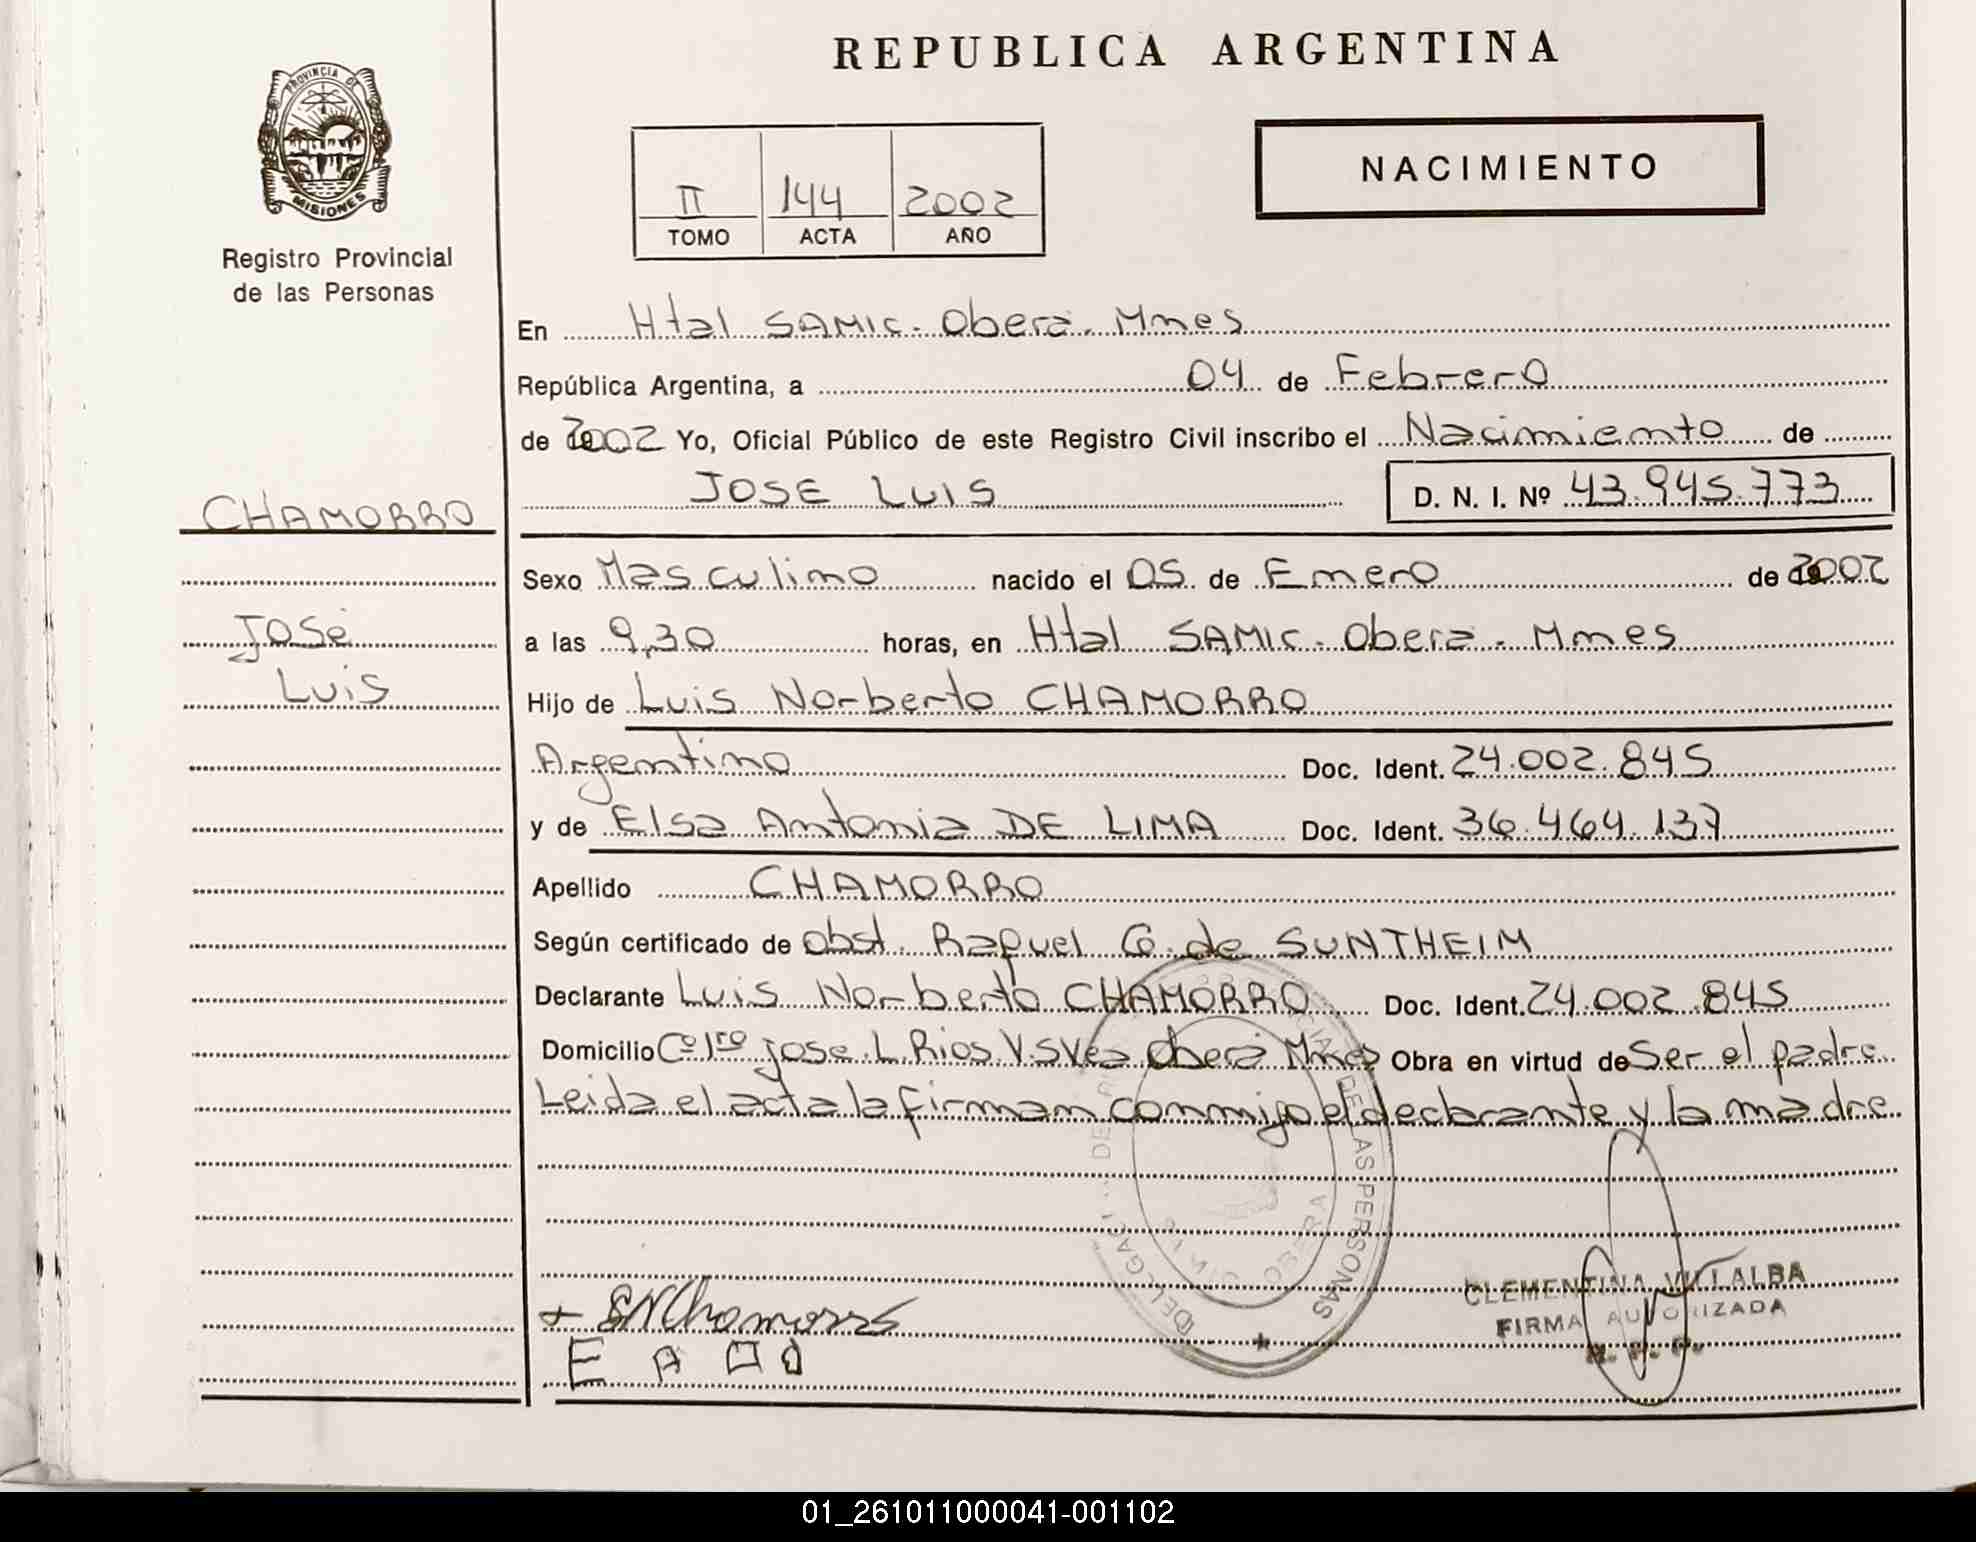 REPUBLICA ARGENTINA
PROVINCIA DE
MISIONES
Registro Provincial
de las Personas
NACIMIENTO
II 144 2002
TOMO ACTA AÑO
En Htal SAMIC. Obera. Mnes
República Argentina, a 04 de Febrero
de 2002 Yo, Oficial Público de este Registro Civil inscribo el Nacimiento de
JOSE LUIS D. N. I. Nº 43.945.773
CHAMORRO
José
Luis
Sexo Masculino nacido el 05 de Enero de 2002
a las 9,30 horas, en Htal SAMIC. Obera. Mnes
Hijo de Luis Norberto CHAMORRO
Argentino Doc. Ident. 24.002.845
y de Elsa Antonia DE LIMA Doc. Ident. 36.464.137
Apellido CHAMORRO
Según certificado de obst. Raquel G. de SUNTHEIM
Declarante Luis Norberto CHAMORRO Doc. Ident. 24.002.845
Domicilio Cº 1ro Jose L. Rios V. Svea Oberá Mnes Obra en virtud de Ser el padre
Leida el acta la firman conmigo el declarante y la madre
DE LAS PERSONAS
OBERA
CLEMENTINA VILLALBA
FIRMA AUTORIZADA
R. P. P.
Chamorro
E A
01_261011000041-001102